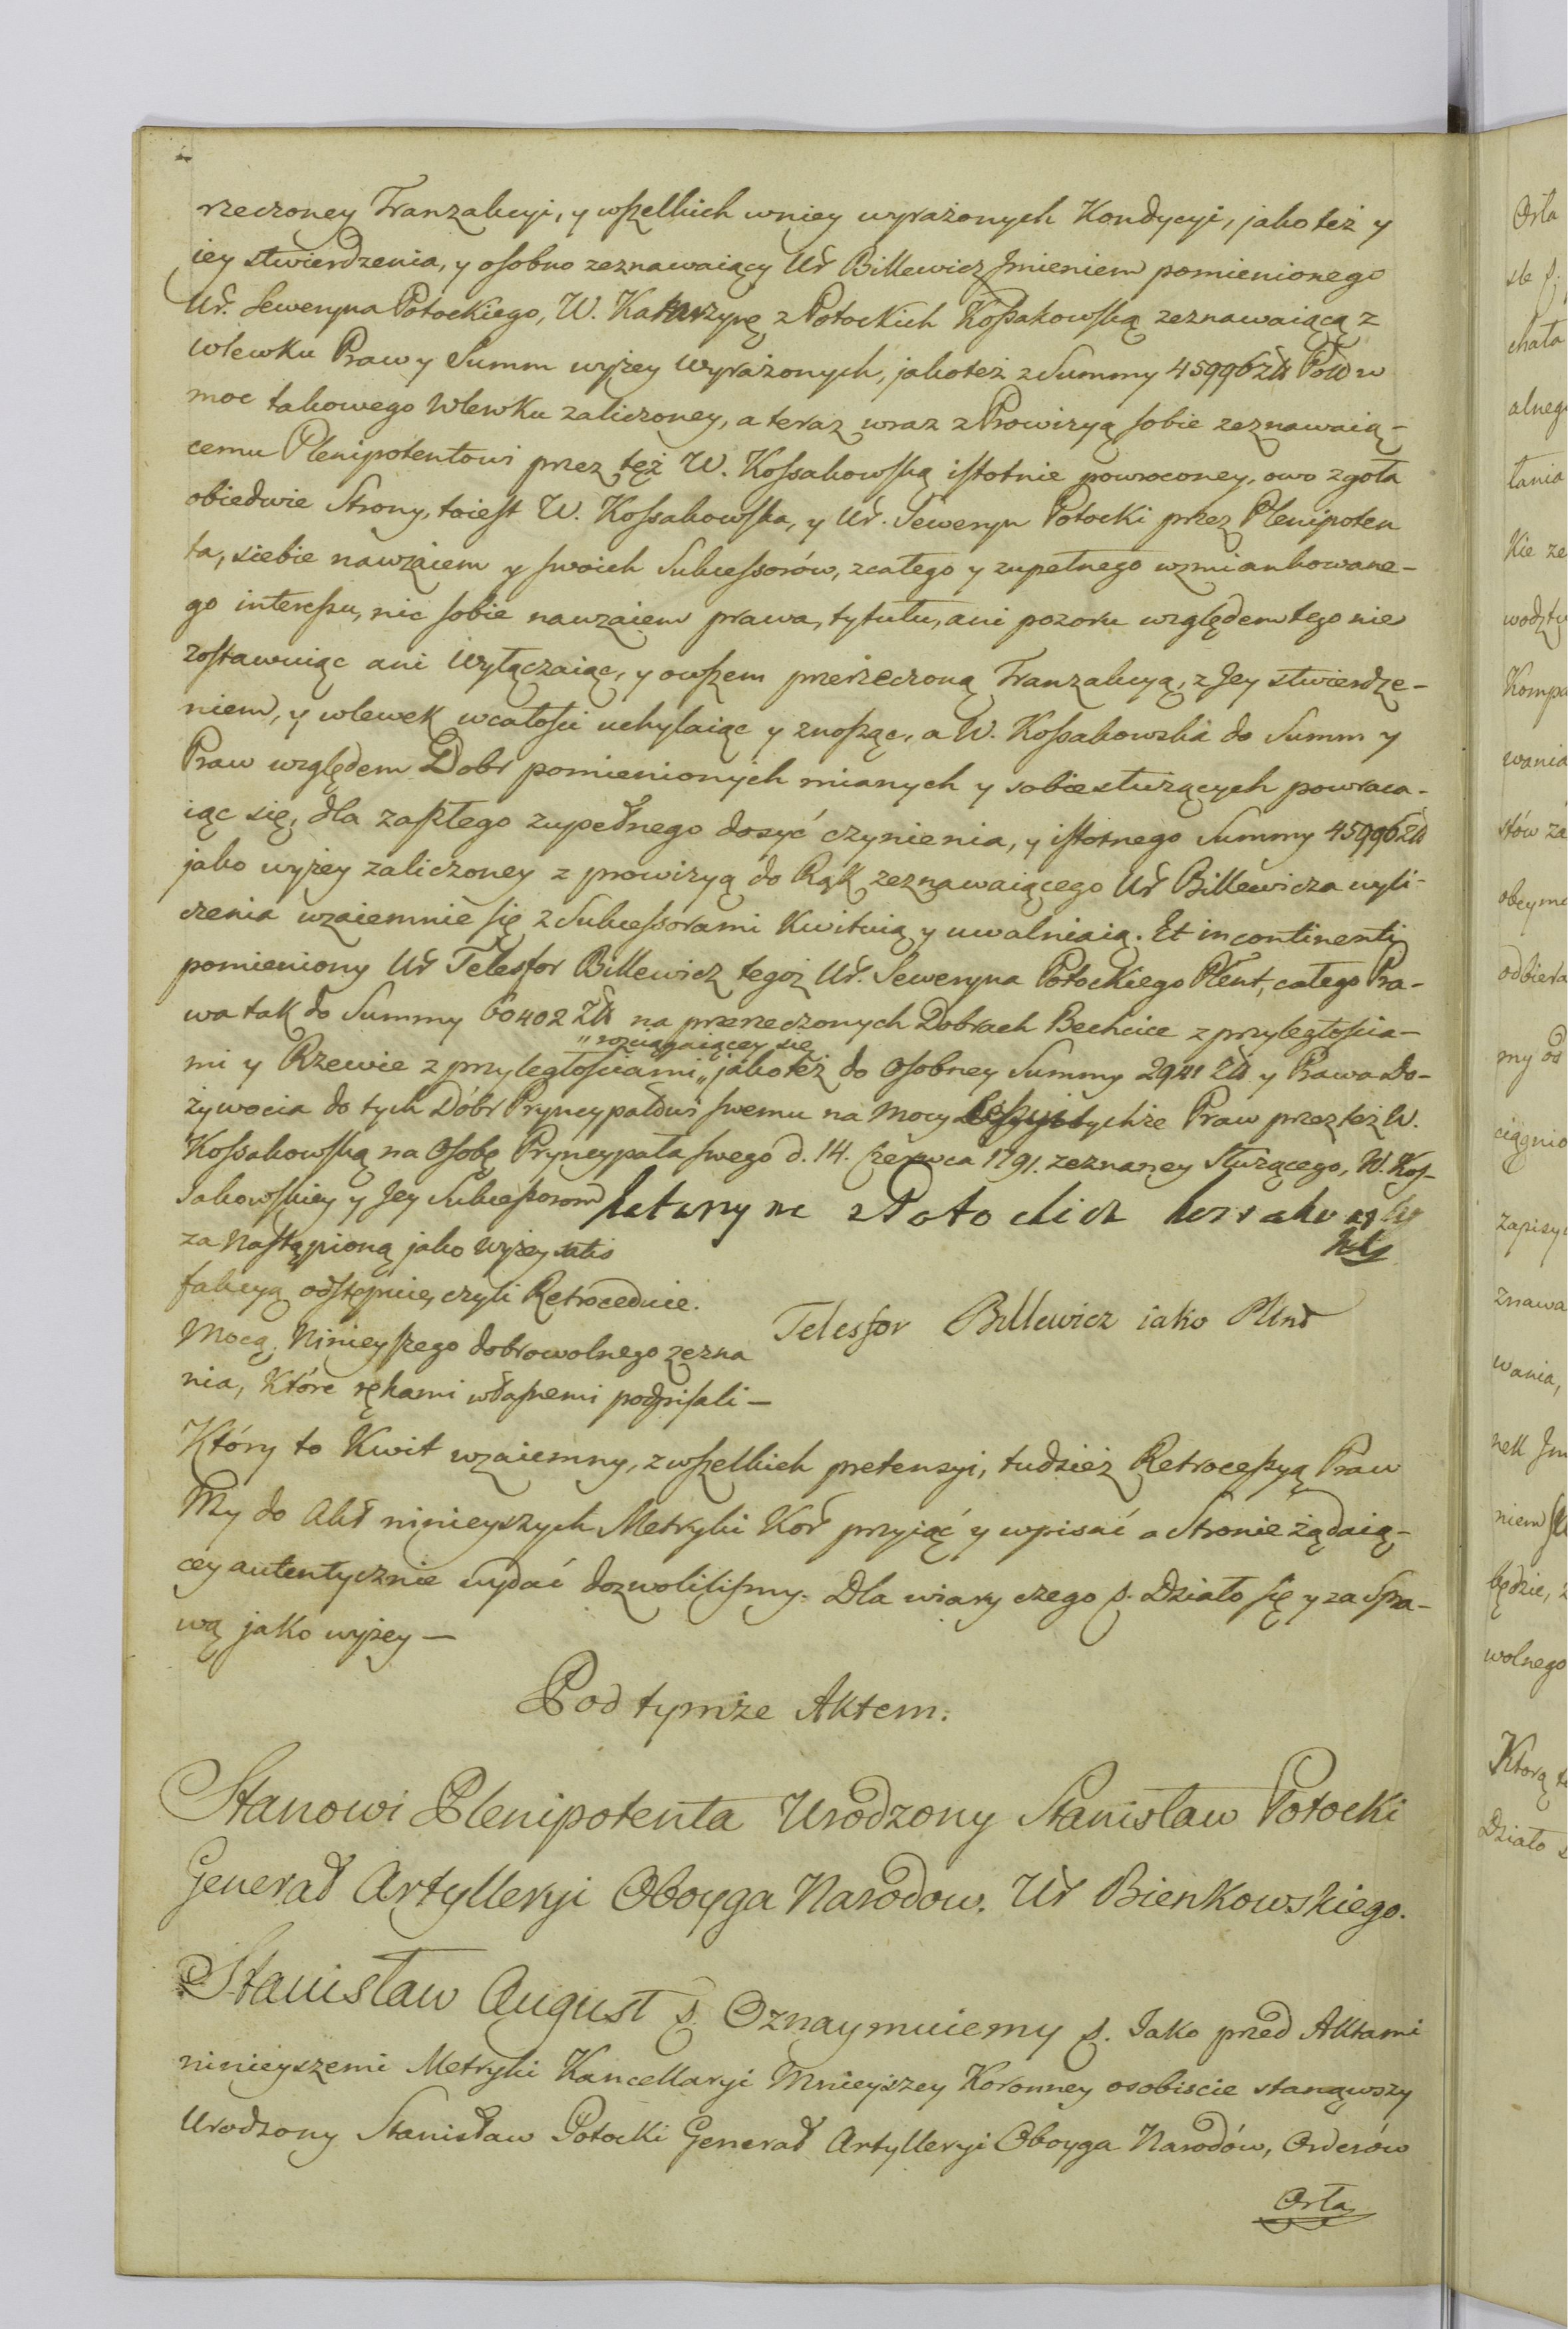 rzeczoney Tranzakcyi, y wszelkich wniey wyrażonych Kondycyi, jako też y
iey stwierdzenia, y osobno zeznawaiący Ur Billewicz Jmieniem pomienionego
Ur. Seweryna Potockiego, W. Katarzynę z Potockich Kossakowską zeznawaiącą z
Wlewku Praw y Summ wyżey wyrażonych, jakoteż z Summy 45996 Zł Pol w
moc takowego Wlewku zaliczoney, a teraz wraz z Prowizyą sobie zeznawaią-
cemu Plenipotentowi przez tęż W. Kossakowską istotnie powroconey, owo zgoła
obiedwie Strony, toiest W. Kossakowska, y Ur. Seweryn Potocki przez Plenipoten
ta, siebie nawzaiem y swoich Sukcessorów, zcałego y zupełnego wzmiankowane-
go interessu, nic sobie nawzaiem prawa, tytułu, ani pozoru względem tego nie
zostawuiąc ani Wyłączaiąc, y owszem przerzeczoną Tranzakcyą, z Jey stwierdze-
niem, y wlewek wcałości uchylaiąc y znosząc, a W. Kossakowska do Summ y
Praw względem Dobr pomienionych mianych y sobie służących powraca-
iąc się, dla zaszłego zupełnego dosyć czynienia, y istotnego Summy 45996 Zł
jako wyżey zaliczoney z prowizyą do Rąk zeznawaiącego Ur Billewicza wyli-
czenia wzaiemnie się z Sukcessorami Kwituią y uwalniaią. Et incontinenti
pomieniony Ur Telesfor Billewicz tegoż Ur. Seweryna Potockiego Plent, całego Pra-
wa tak do Summy 60402 Zł na przerzeczonych Dobrach Bechcice z przyległościa-
„rozciągaiącey się
mi y Rzewie z przyległościami „ jakoteż do osobney Summy 2941 Zł y Prawa Do-
żywocia do tych Dóbr Pryncypałowi swemu na mocy tychże Praw przez też W.
Kossakowską na Osobę Pryncypała swego d. 14. Czerwca 1791. zeznaney służącego, W. Kos-
sakowskiey y Jey Sukcessorom Katarzyna z Potockich Kossakowska
za Nastąpioną jako wyżey satis
fakcyą odstępuie, czyli Retroceduie.
Telesfor Billewicz iako Plnt
Mocą, Ninieyszego dobrowolnego zezna
nia, Które rękami własnemi podpisali —
Który to Kwit wzaiemny, z wszelkich pretensyi, tudzież Retrocessyą Praw
My do Akt ninieyszych Metryki Kor przyjąć y wpisać a Stronie żądaią-
cey autentycznie wydać dozwoliliśmy. Dla wiary czego p. Działo się y za Spra-
wą jako wyżey —
Pod tymże Aktem.
Stanowi Plenipotenta Urodzony Stanisław Potocki
Generał Artylleryi Oboyga Narodow. Ur Bienkowskiego.
Stanisław August p. Oznaymuiemy p. Jako przed Aktami
ninieyszemi Metryki Kancellaryi Mnieyszey Koronney osobiscie stanąwszy
Urodzony Stanisław Potocki Generał Artylleryi Oboyga Narodów, Orderów
Orła